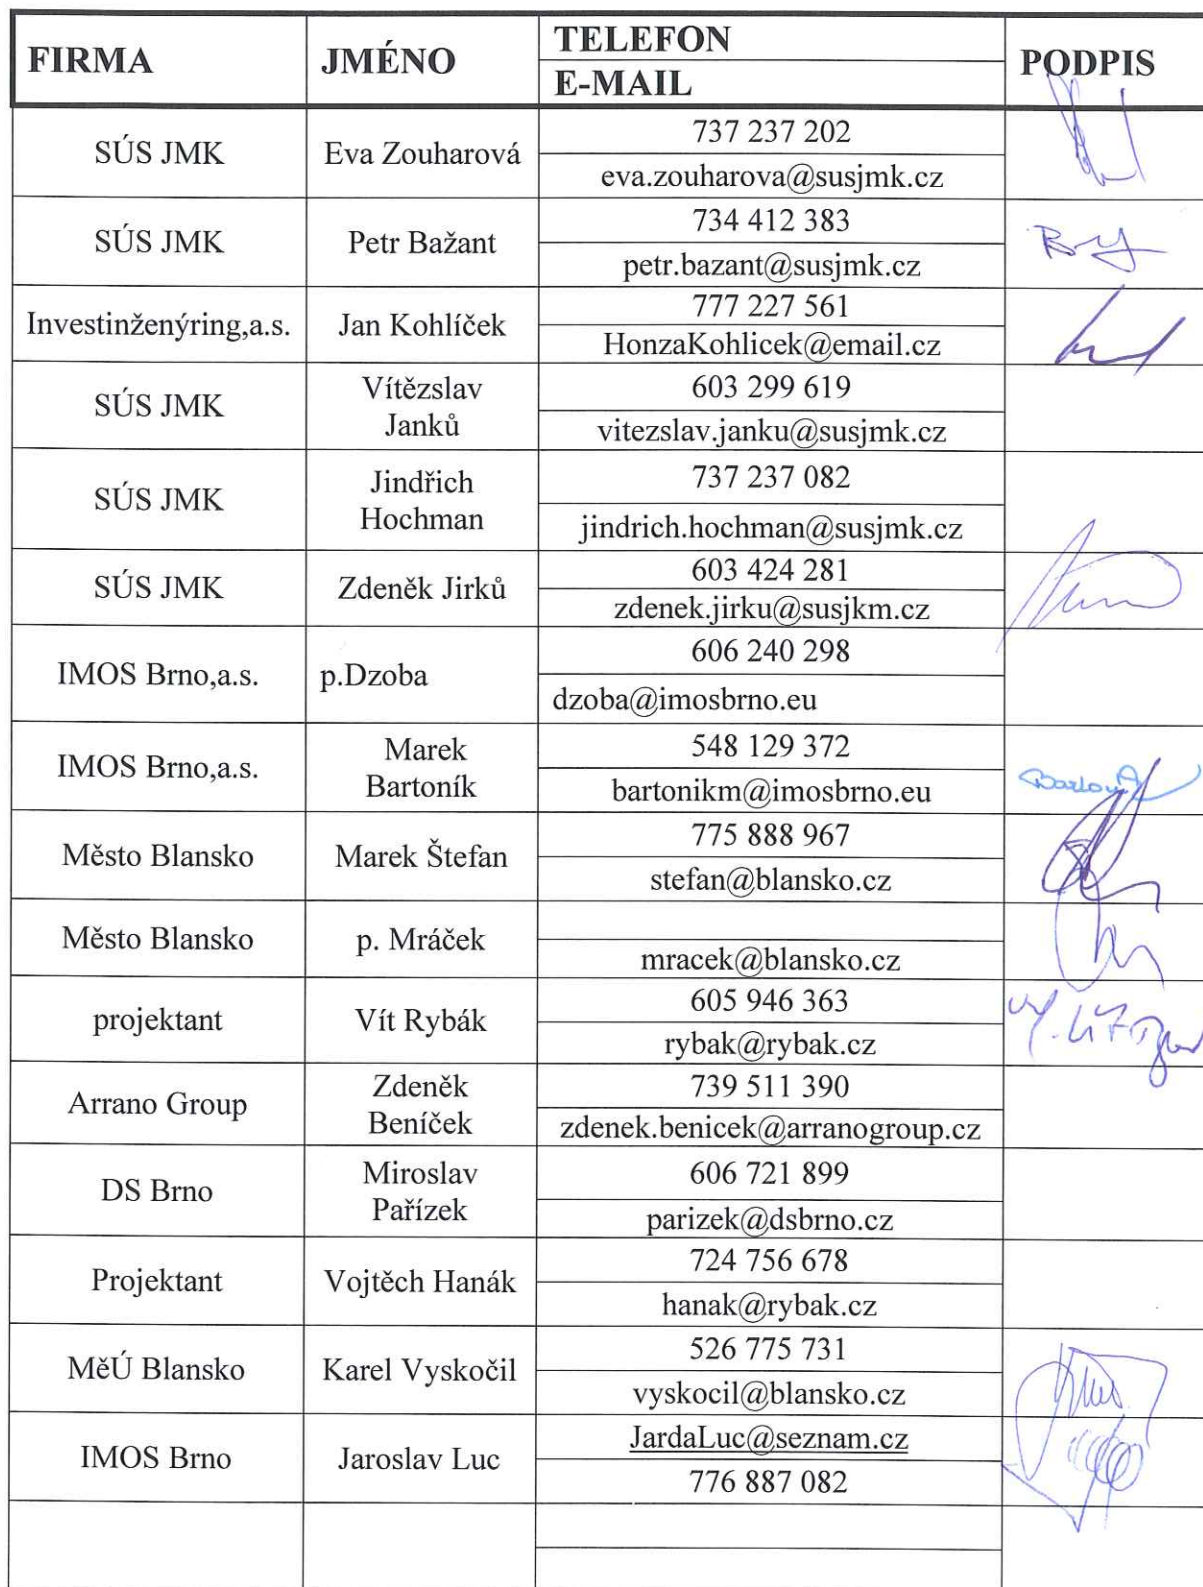 FIRMA
JMÉNO
TELEFON
E-MAIL
PODPIS
SÚS JMK
Eva Zouharová
737 237 202
eva.zouharova@susjmk.cz
SÚS JMK
Petr Bažant
734 412 383
petr.bazant@susjmk.cz
Investinženýring,a.s.
Jan Kohlíček
777 227 561
HonzaKohlicek@email.cz
SÚS JMK
Vítězslav
Janků
603 299 619
vitezslav.janku@susjmk.cz
SÚS JMK
Jindřich
Hochman
737 237 082
jindrich.hochman@susjmk.cz
SÚS JMK
Zdeněk Jirků
603 424 281
zdenek.jirku@susjkm.cz
IMOS Brno,a.s.
p.Dzoba
606 240 298
dzoba@imosbrno.eu
IMOS Brno,a.s.
Marek
Bartoník
548 129 372
bartonikm@imosbrno.eu
Město Blansko
Marek Štefan
775 888 967
stefan@blansko.cz
Město Blansko
p. Mráček
mracek@blansko.cz
projektant
Vít Rybák
605 946 363
rybak@rybak.cz
Arrano Group
Zdeněk
Beníček
739 511 390
zdenek.benicek@arranogroup.cz
DS Brno
Miroslav
Pařízek
606 721 899
parizek@dsbrno.cz
Projektant
Vojtěch Hanák
724 756 678
hanak@rybak.cz
MěÚ Blansko
Karel Vyskočil
526 775 731
vyskocil@blansko.cz
IMOS Brno
Jaroslav Luc
JardaLuc@seznam.cz
776 887 082